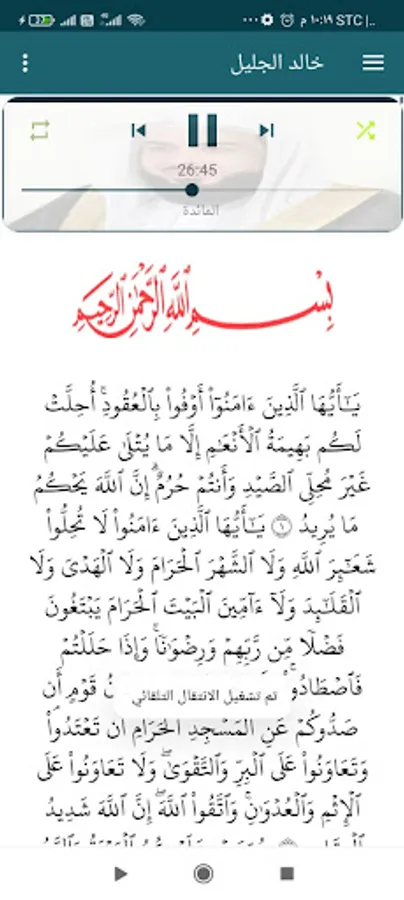 ١٠:١٩ م STC |..
خالد الجليل
26:45
المائدة
بِسْمِ ٱللَّهِ ٱلرَّحْمَٰنِ ٱلرَّحِيمِ
يَـٰٓأَيُّهَا ٱلَّذِينَ ءَامَنُوٓا۟ أَوْفُوا۟ بِٱلْعُقُودِ ۚ أُحِلَّتْ
لَكُم بَهِيمَةُ ٱلْأَنْعَـٰمِ إِلَّا مَا يُتْلَىٰ عَلَيْكُمْ
غَيْرَ مُحِلِّى ٱلصَّيْدِ وَأَنتُمْ حُرُمٌ ۗ إِنَّ ٱللَّهَ يَحْكُمُ
مَا يُرِيدُ ۝١ يَـٰٓأَيُّهَا ٱلَّذِينَ ءَامَنُوا۟ لَا تُحِلُّوا۟
شَعَـٰٓئِرَ ٱللَّهِ وَلَا ٱلشَّهْرَ ٱلْحَرَامَ وَلَا ٱلْهَدْىَ وَلَا
ٱلْقَلَـٰٓئِدَ وَلَآ ءَآمِّينَ ٱلْبَيْتَ ٱلْحَرَامَ يَبْتَغُونَ
فَضْلًا مِّن رَّبِّهِمْ وَرِضْوَٰنًا ۚ وَإِذَا حَلَلْتُمْ
فَٱصْطَادُوا۟ قَوْمٍ أَن
تم تشغيل الانتقال التلقائي
صَدُّوكُمْ عَنِ ٱلْمَسْجِدِ ٱلْحَرَامِ أَن تَعْتَدُوا۟
وَتَعَاوَنُوا۟ عَلَى ٱلْبِرِّ وَٱلتَّقْوَىٰ ۖ وَلَا تَعَاوَنُوا۟ عَلَى
ٱلْإِثْمِ وَٱلْعُدْوَٰنِ ۚ وَٱتَّقُوا۟ ٱللَّهَ ۖ إِنَّ ٱللَّهَ شَدِيدُ